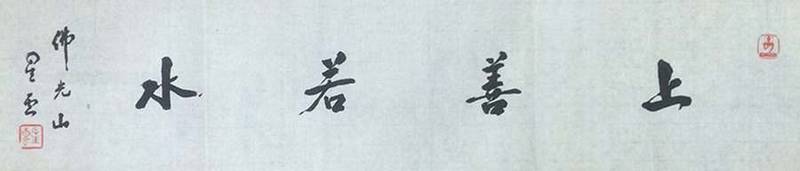 上善若水
佛光山
星雲